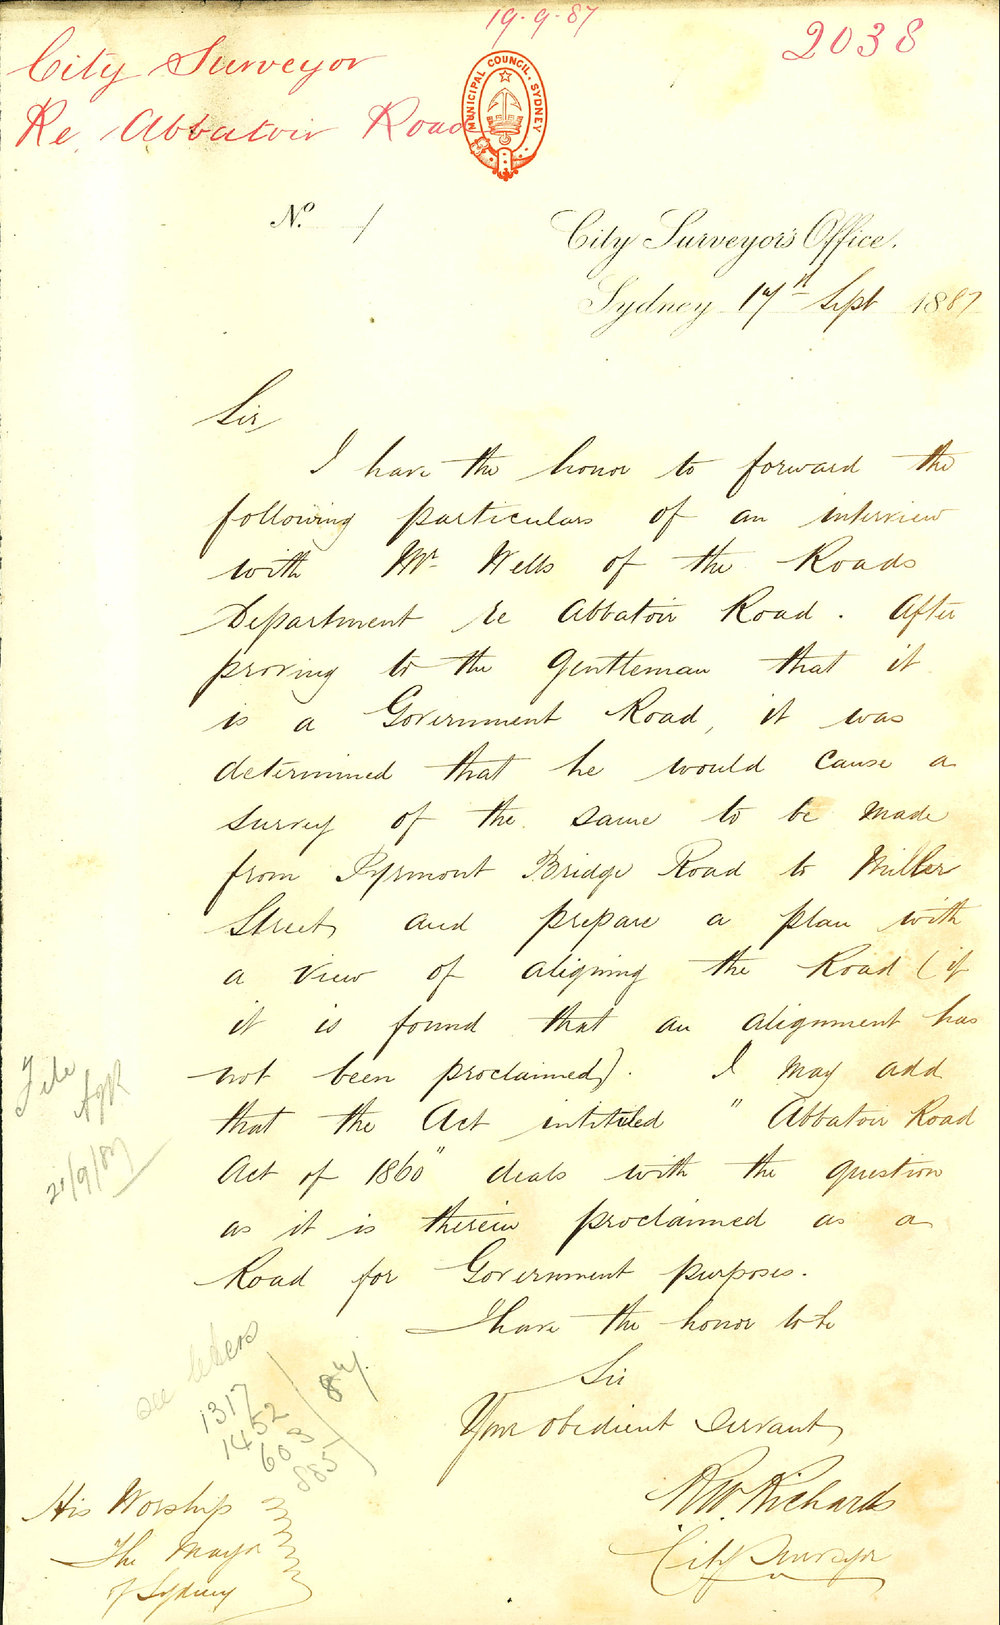 19·9·87
2038
City Surveyor
Re, Abbatoir Road
MUNICIPAL COUNCIL. SYDNEY
No. /
City Surveyor's Office.
Sydney 17th Sept 1887
Sir,
I have the honor to forward the
following particulars of an interview
with Mr. Wells of the Roads
Department re Abbatoir Road. After
proving to the Gentleman that it
is a Government Road, it was
determined that he would cause a
survey of the same to be made
from Pyrmont Bridge Road to Miller
Street, and prepare a plan with
a view of aligning the Road (if
it is found that an alignment has
not been proclaimed). I may add
that the Act intituled "Abbatoir Road
Act of 1860" deals with the question
as it is therein proclaimed as a
Road for Government purposes.
I have the honor to be
Sir
Your obedient servant,
RW. Richards
City Surveyor
File
21/9/87
see letters
1317
1452
603
885
87.
His Worship
The Mayor
of Sydney